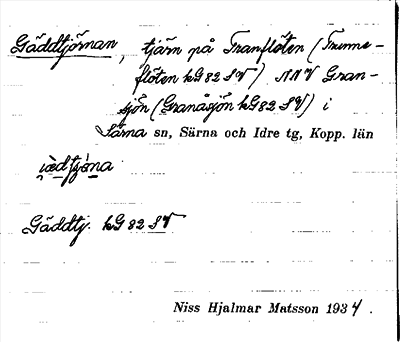 Gäddtjörnan, tjärn på Tranflöten (Trunne-
flöten kG 82 SV) NNV Gran-
sjön (Granåsjön kG 82 SV) i
Särna sn, Särna och Idre tg, Kopp. län
Gäddtj. kG 82 SV
Niss Hjalmar Matsson 1934.